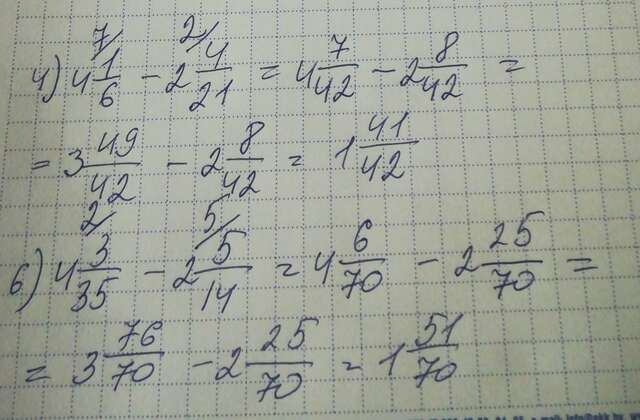 4) 4 1/6 (7/) − 2 4/21 (2/) = 4 7/42 − 2 8/42 =
= 3 49/42 − 2 8/42 = 1 41/42
6) 4 3/35 (2/) − 2 5/14 (5/) = 4 6/70 − 2 25/70 =
= 3 76/70 − 2 25/70 = 1 51/70